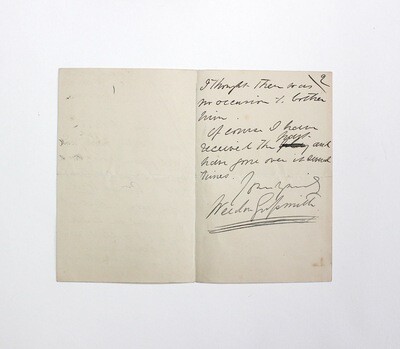 2
I thought there was
no occasion to bother
him.
Of course I have
received the and
have gone over it several
times.
Yours
Weedon Grossmith